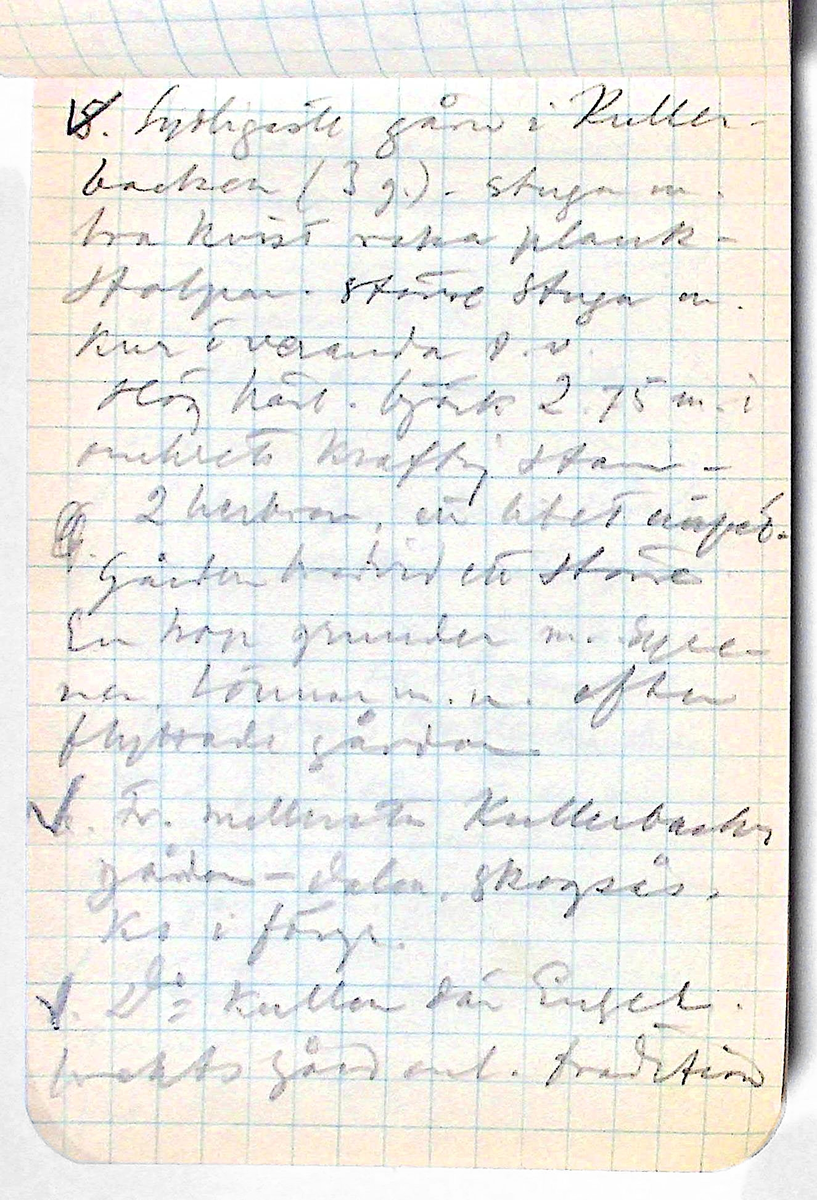 8. Sydligaste gården i Kuller-
backen (3 g.) - stuga m.
bra kvist raka plank-
stolpar. större stuga m.
kur i veranda s. v.
Hög björk 2.75 m. i
omkrets kraftig stam -
2 härbren, ett litet
Gården bredvid ett större
En hop grunder m. Syre-
ner, lönnar m. m. efter
flyttade gårdar
Fr. mellersta Kullerbacks
gården - dalen, skogsås,
Ko i förgr.
D:o kullen där Engel-
brekts gård enl. tradition